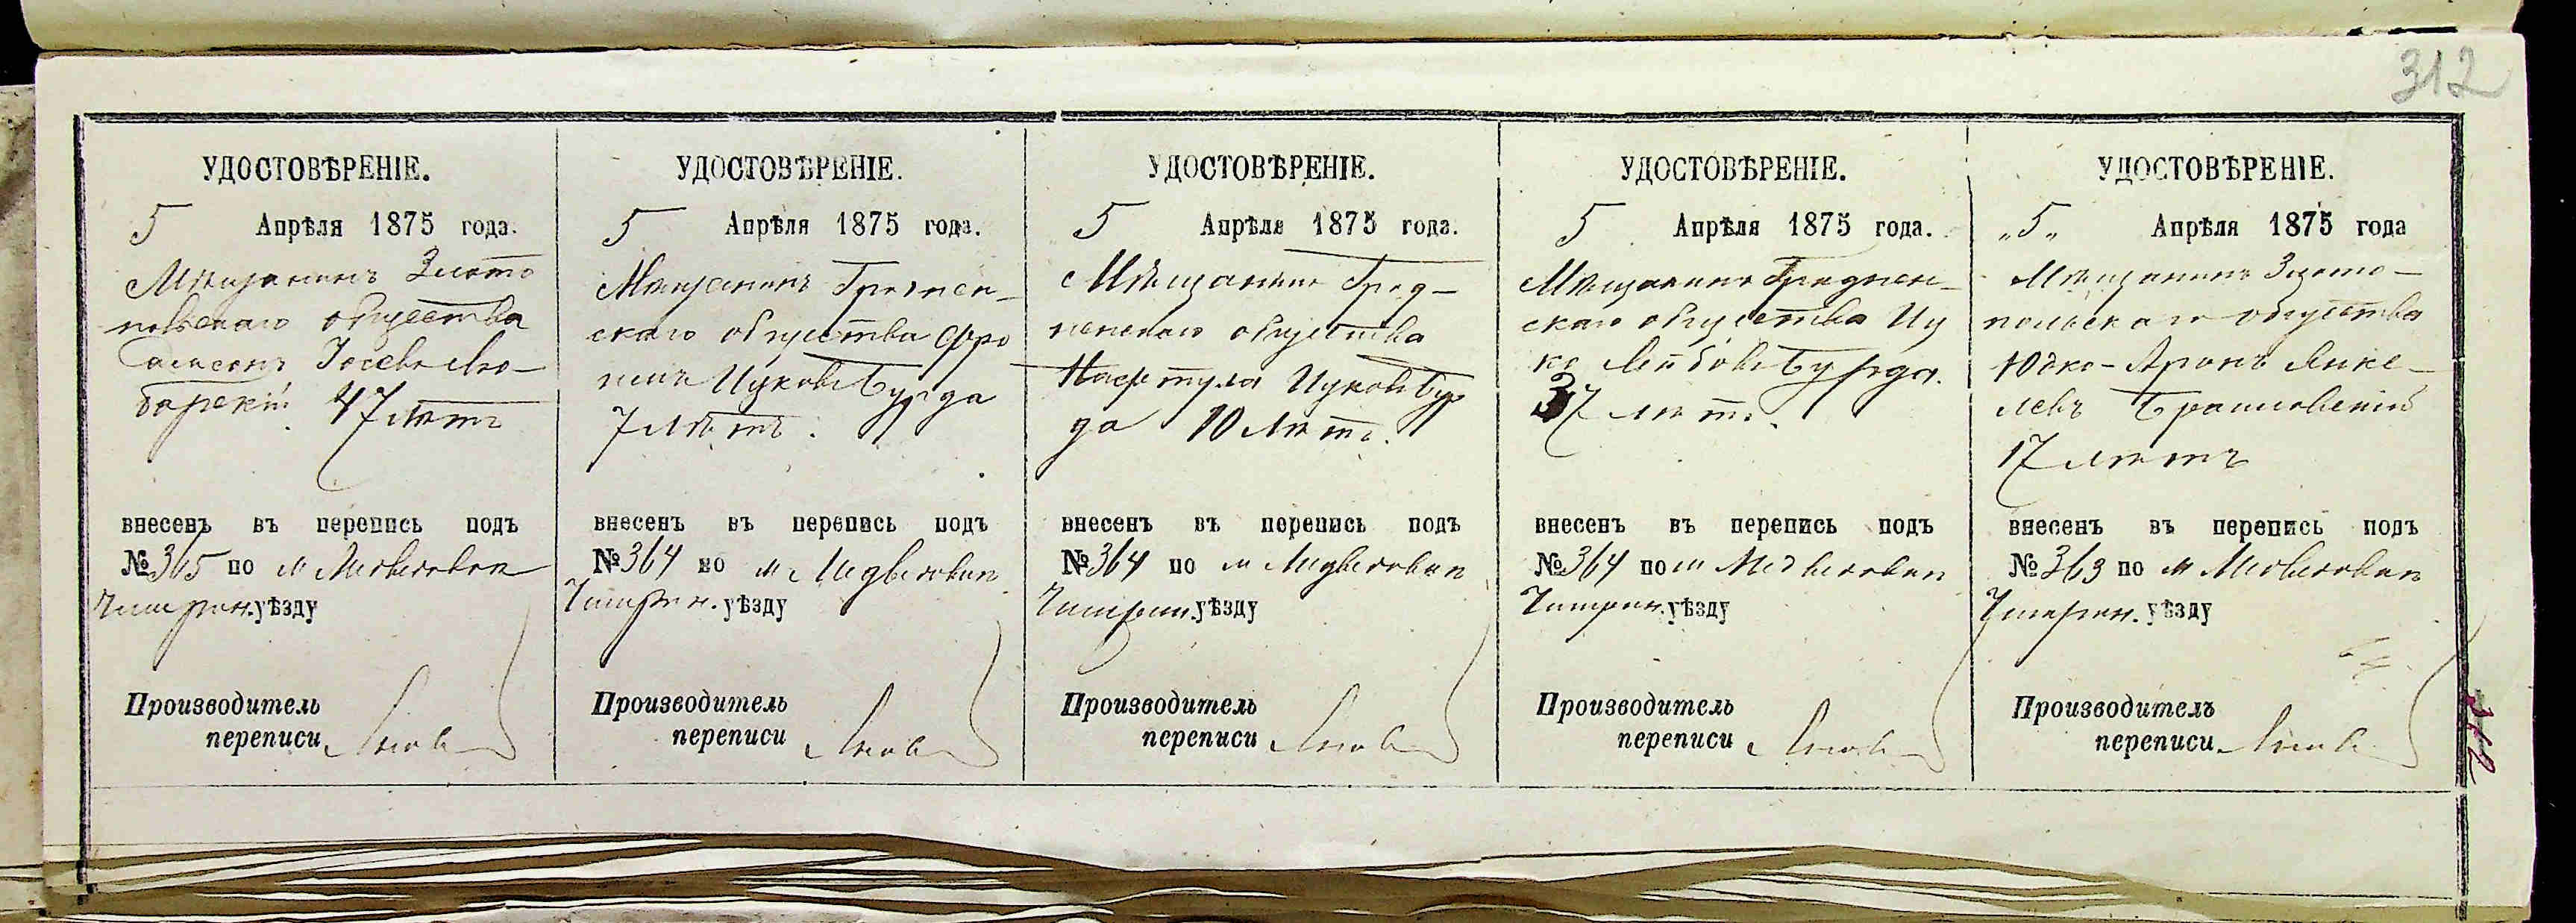 312
УДОСТОВѢРЕНІЕ.
5 Апрѣля 1875 года.
Мѣщанинъ Злато
польскаго общества
Іосевъ Лю-
барскій 47 лѣтъ
внесенъ въ перепись подъ
№ 365 по м Медведовки
Чигрин. уѣзду
Производитель
переписи
УДОСТОВѢРЕНІЕ.
5 Апрѣля 1875 года.
Мѣщанинъ Гроднен-
скаго общества Фро
имъ Ицковъ Бурда
7 лѣтъ.
внесенъ въ перепись подъ
№ 364 по м Медведовки
Чигрин. уѣзду
Производитель
переписи
УДОСТОВѢРЕНІЕ.
5 Апрѣля 1875 года.
Мѣщанинъ Грод-
ненскаго общества
Нафтула Ицковъ Бур
да 10 лѣтъ.
внесенъ въ перепись подъ
№ 364 по м Медведовки
Чигрин. уѣзду
Производитель
переписи
УДОСТОВѢРЕНІЕ.
5 Апрѣля 1875 года.
Мѣщанинъ Гроднен-
скаго общества Иц
ко Лейбовъ Бурда.
37 лѣтъ.
внесенъ въ перепись подъ
№ 364 по м Медведовки
Чигрин. уѣзду
Производитель
переписи
УДОСТОВѢРЕНІЕ.
„5„ Апрѣля 1875 года
Мѣщанинъ Злато-
польскаго общества
Юдко-Аронъ Янке-
левъ Браиловскій
17 лѣтъ
внесенъ въ перепись подъ
№ 363 по м Медведовки
Чигрин. уѣзду
Производитель
переписи
312